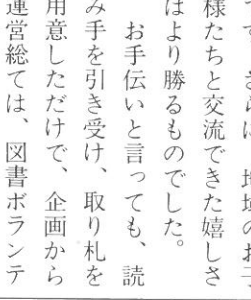 様たちと交流できた嬉しさ
はより勝るものでした。
お手伝いと言っても、読
み手を引き受け、取り札を
用意しただけで、企画から
運営総ては、図書ボランテ